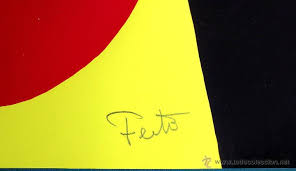 Feito
www.todocoleccion.net